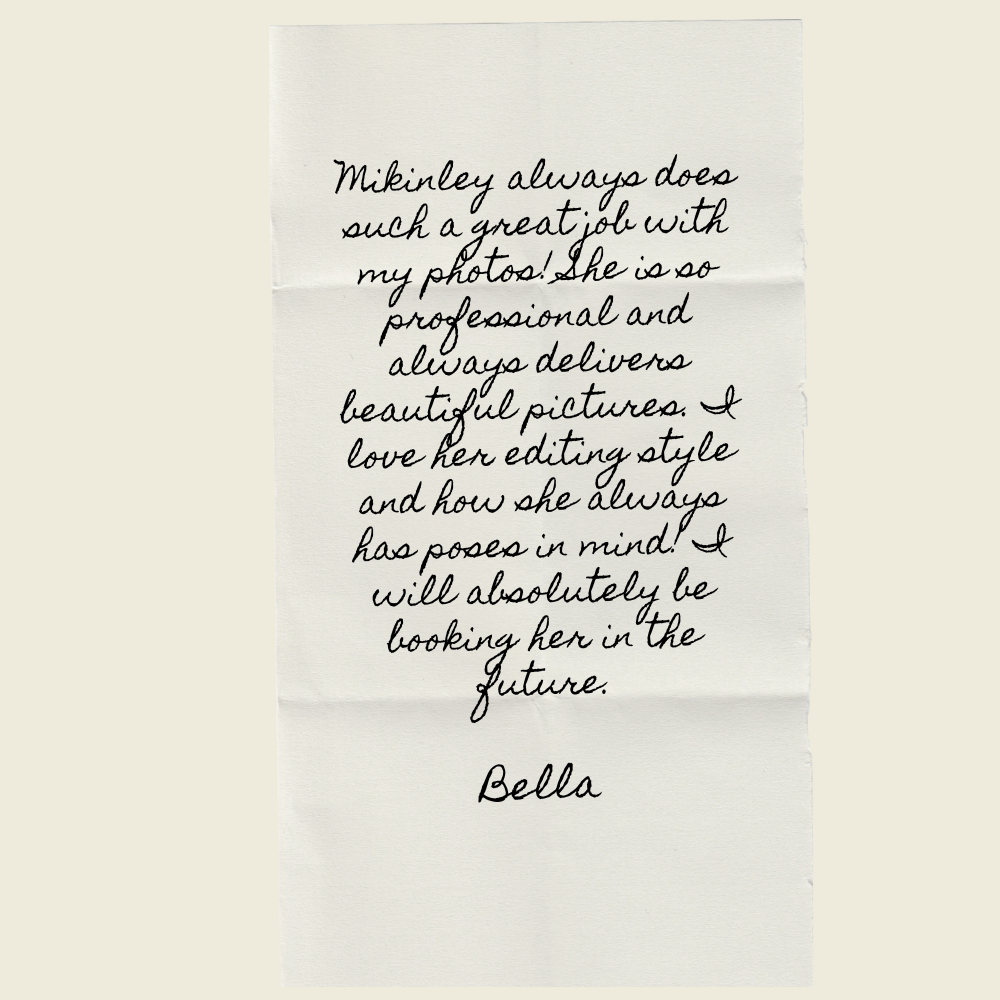 Mikinley always does
such a great job with
my photos! She is so
professional and
always delivers
beautiful pictures. I
love her editing style
and how she always
has poses in mind! I
will absolutely be
booking her in the
future.
Bella